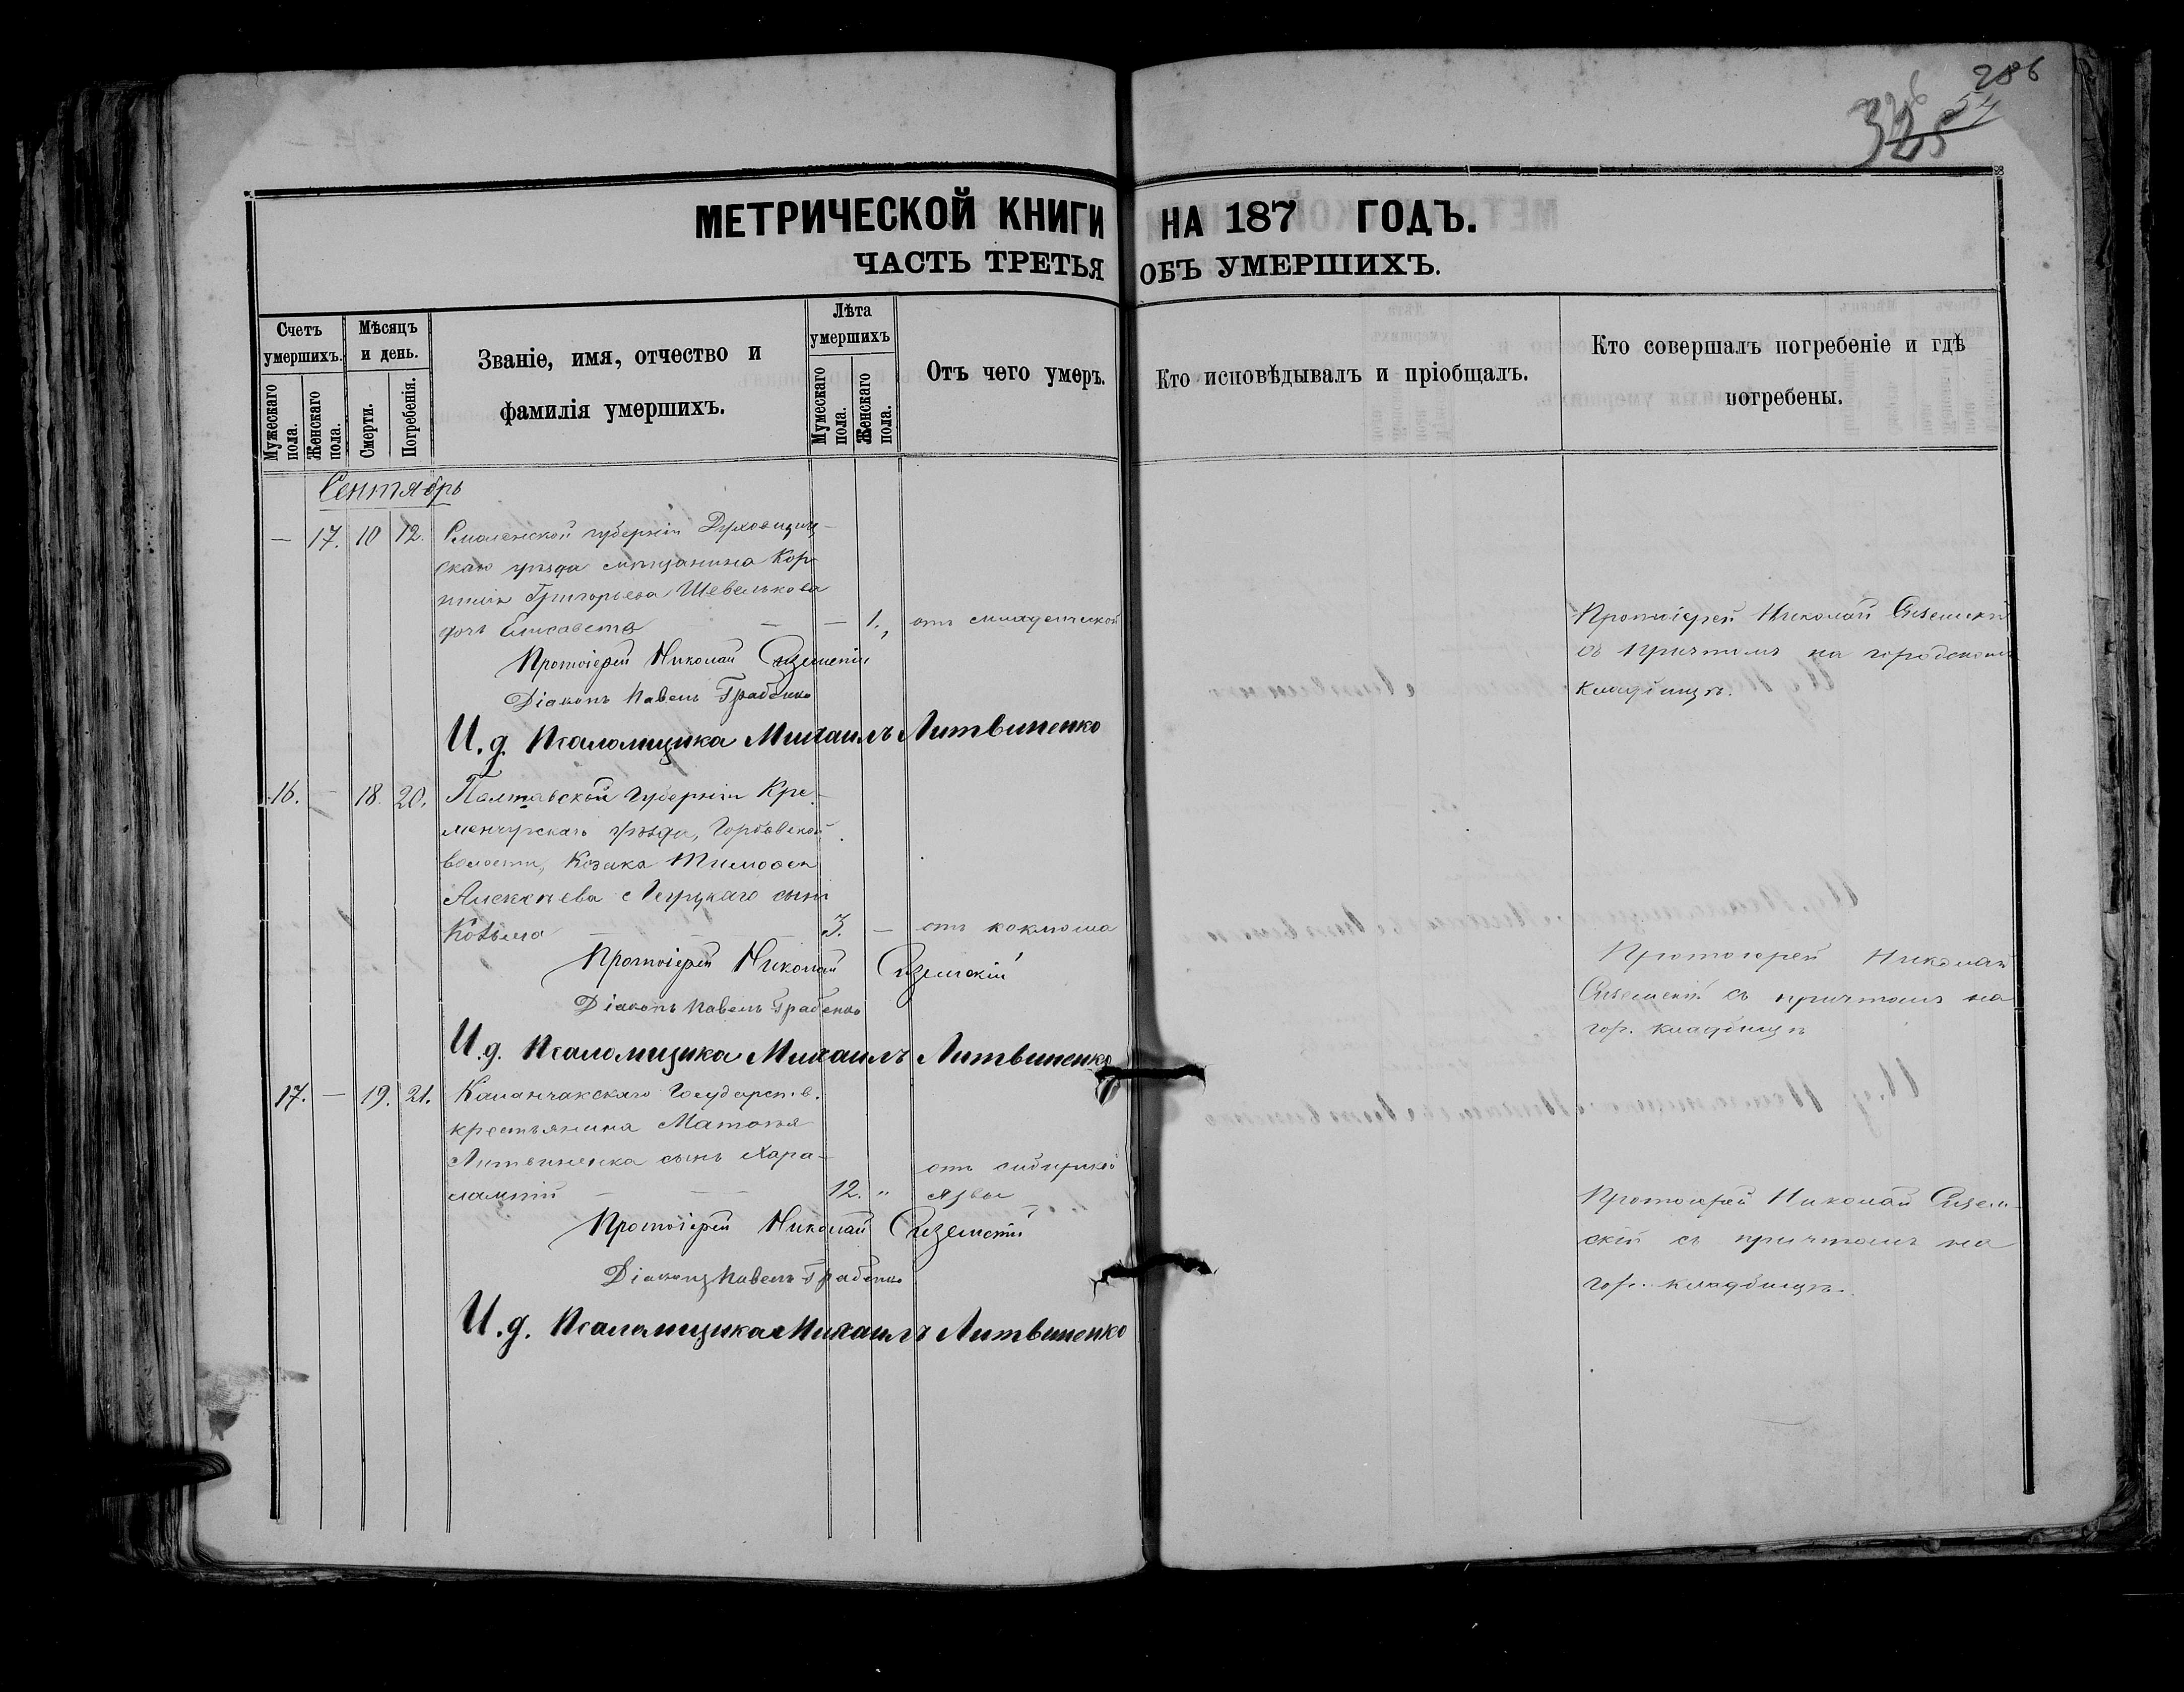 286
54
326
325
МЕТРИЧЕСКОЙ КНИГИ НА 187 ГОДЪ.
ЧАСТЬ ТРЕТЬЯ ОБЪ УМЕРШИХЪ.
Счетъ умершихъ.
Мужескаго пола.
Женскаго пола.
Мѣсяцъ и день.
Смерти.
Погребенія.
Званіе, имя, отчество и
фамилія умершихъ.
Лѣта умершихъ
Мумескаго пола.
Женскаго пола.
Отъ чего умеръ.
Кто исповѣдывалъ и пріобщалъ.
Кто совершалъ погребеніе и гдѣ
погребены.
Сентябрь
— 17. 10 12. Смоленской губерніи Духовщин-
скаго уѣзда мѣщанина Кор-
нилія Григорьева Шевелькова
дочь Елисавета — — 1. отъ младенческой
Протоіерей Николай
съ причтомъ на городскомъ
кладбищѣ.
Протоіерей Николай
Діаконъ Павелъ Грабенко
И. д. Псаломщика Михаилъ Литвиненко
16. — 18. 20. Полтавской Губерніи Кре-
менчугскаго уѣзда, Горбовской
волости, Козака Тимофея
Алексѣева сынъ
Козьма — — 3. — отъ коклюша
Протоіерей Николай
съ причтомъ на
гор. кладбищѣ
Протоіерей Николай
Діаконъ Павелъ Грабенко
И. д. Псаломщика Михаилъ Литвиненко
17. — 19. 21. Каланчакскаго Государств.
крестьянина Матѳея
Литвиненка сынъ Хара-
лампій — — — 12. „ отъ сибирской
язвы
Протоіерей Николай
скій съ причтомъ на
гор. кладбищѣ.
Протоіерей Николай
Діаконъ Павелъ Грабенко
И. д. Псаломщика Михаилъ Литвиненко